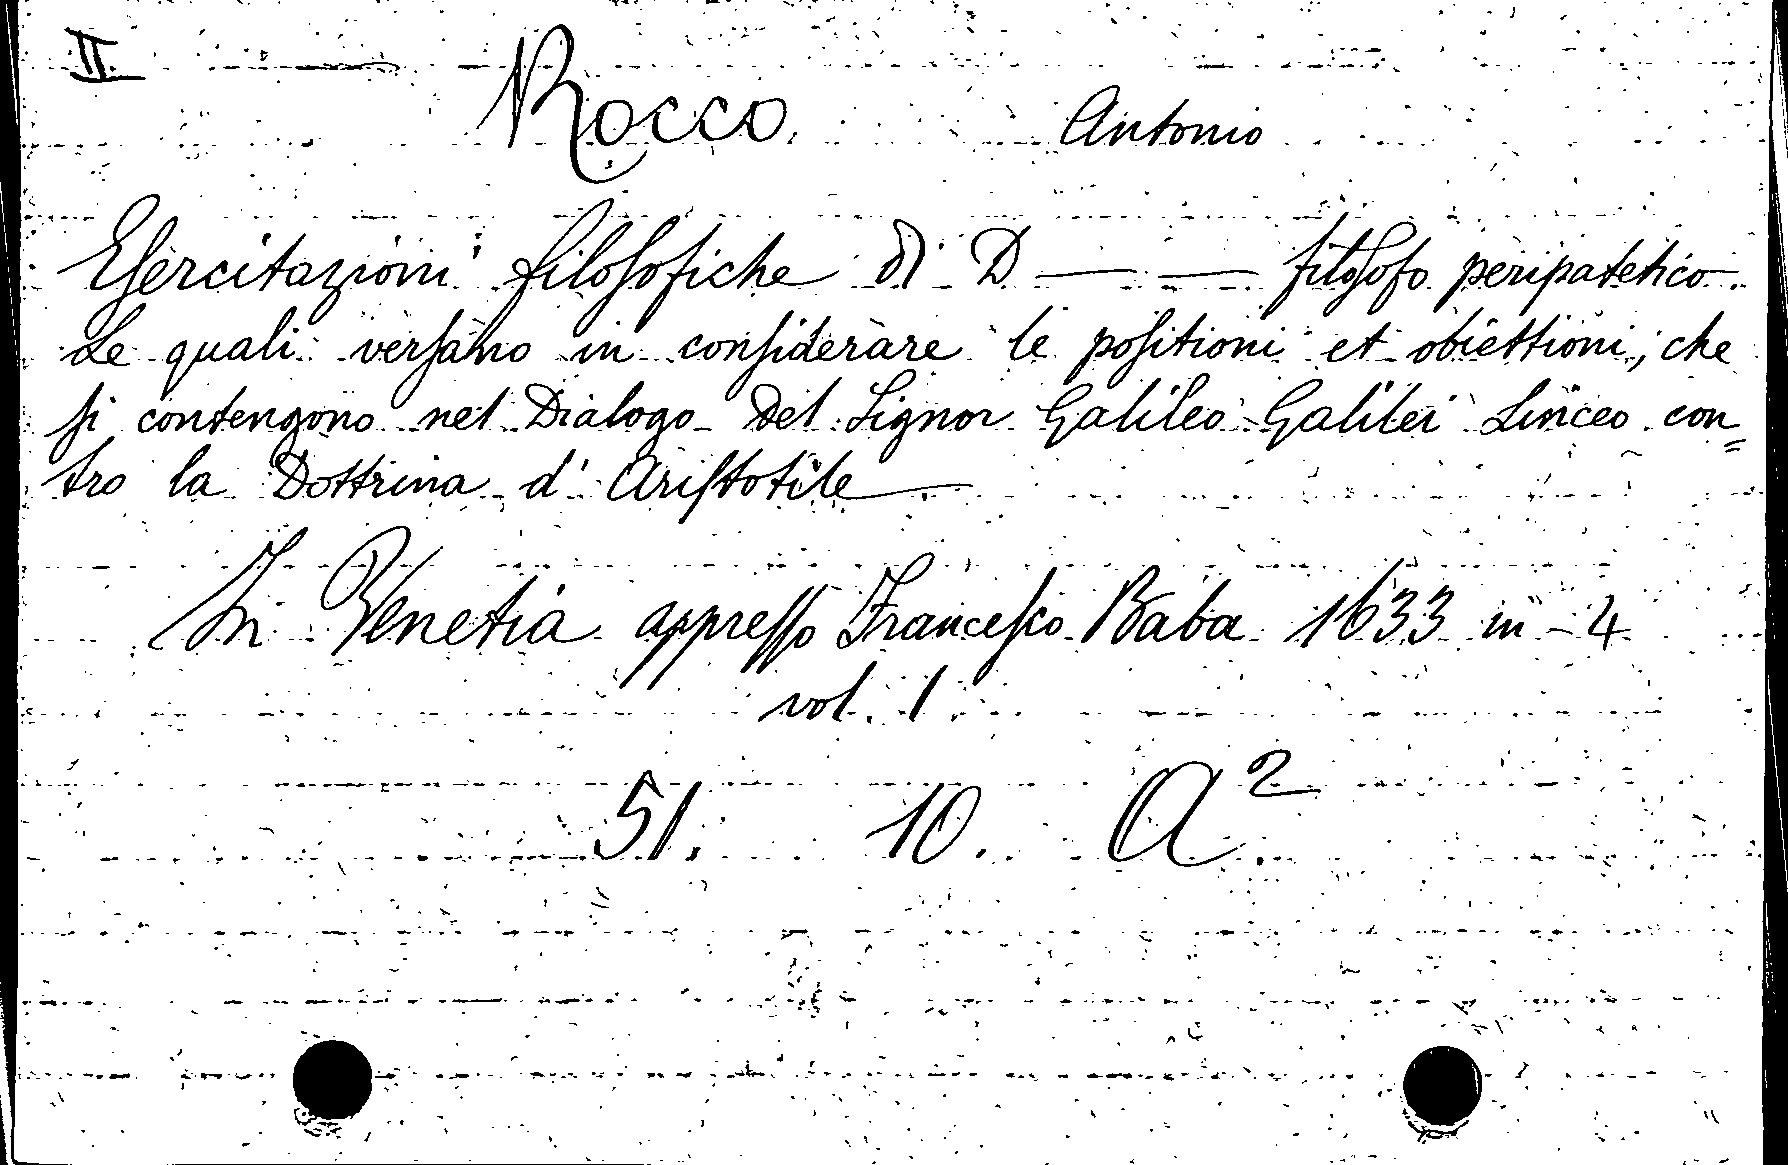 II.
Rocco Antonio
Eſercitazioni filoſofiche di D — — filoſofo peripatetico.
Le quali verſano in conſiderare le poſitioni et obiettioni, che
ſi contengono nel Dialogo del Signor Galileo Galilei Linceo con=
tro la Dottrina d' Ariſtotile —
In Venetia appreſſo Franceſco Baba 1633 in - 4
vol. 1.
51. 10. A².